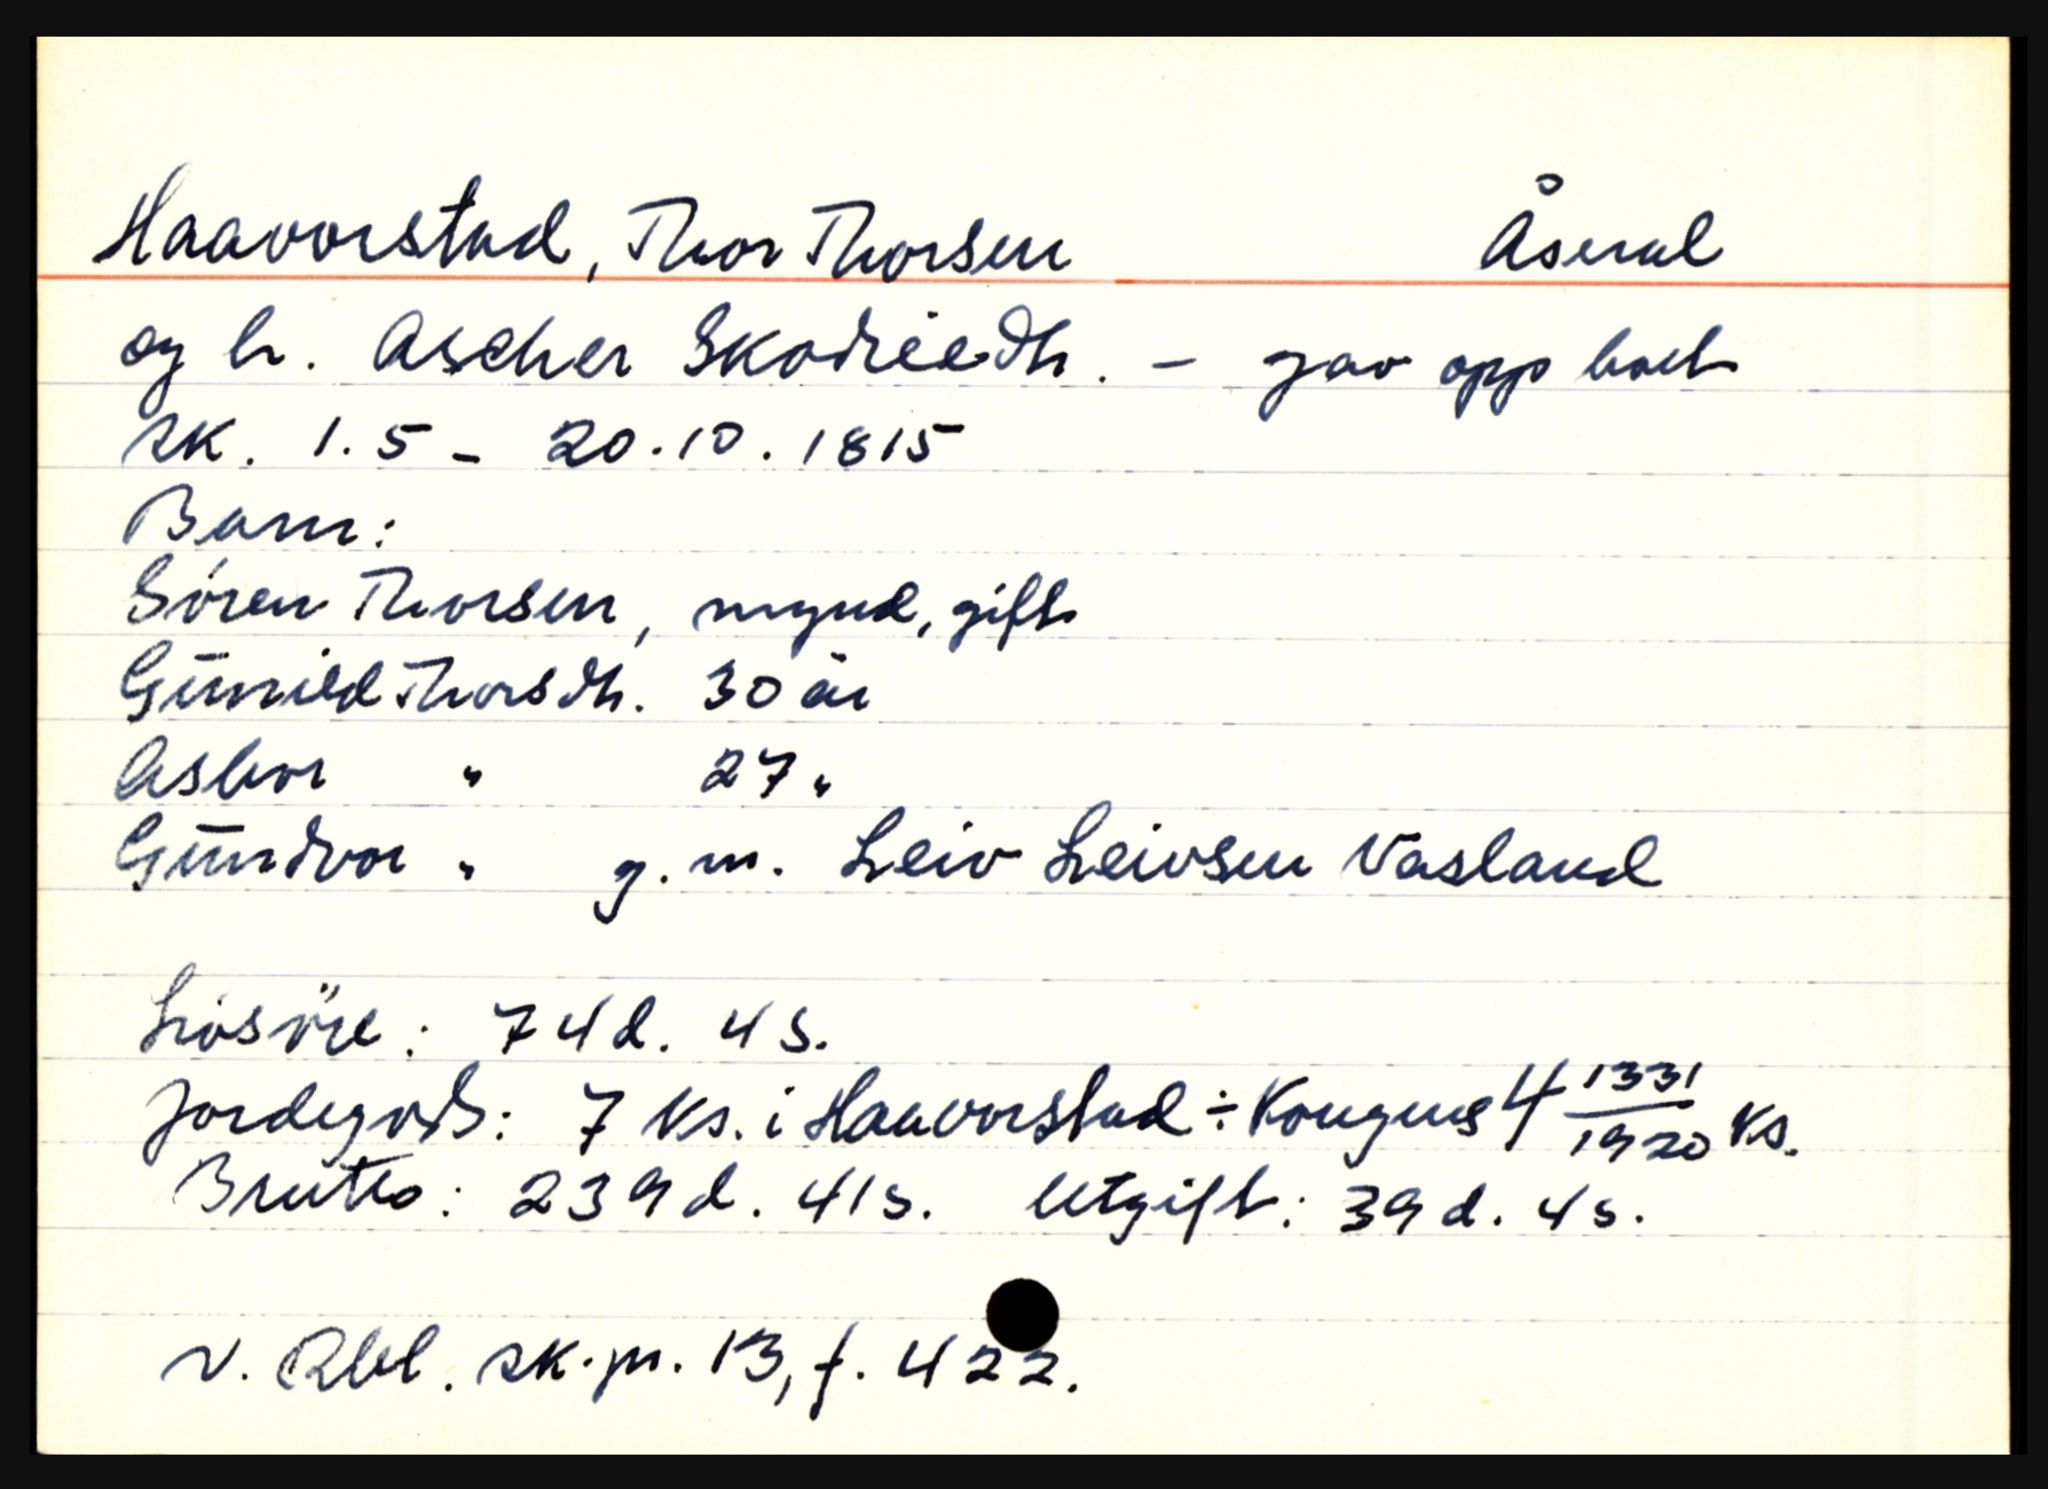 Haavorstad, Thor Thorsen Åseral
og h. Ascher Skodvedh. - gav opp boet
sk. 1.5 - 20.10.1815
Barn:
Søren Thorsen, mynd, gift
Gūnild Thorsdh. 30 år
Asbor " 27 "
Gūndvor " g. m. Leiv Leivsen Vasland
Lösöre: 74d. 4s.
Jordegods: 7 ks. i Haavorstad ÷ Kongens 4 1331/1920 ks.
Brutto: 239d. 41s. Utgift: 39d. 4s.
v. Rbl. sk.pr. 13, f. 422.